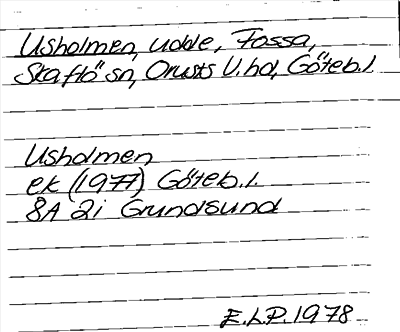 Usholmen, udde, Fossa,
Skaftö sn, Orusts V.hd, Göteb.l.
Usholmen
ek (1977) Göteb.l.
8A 2i Grundsund
E.L.P. 1978